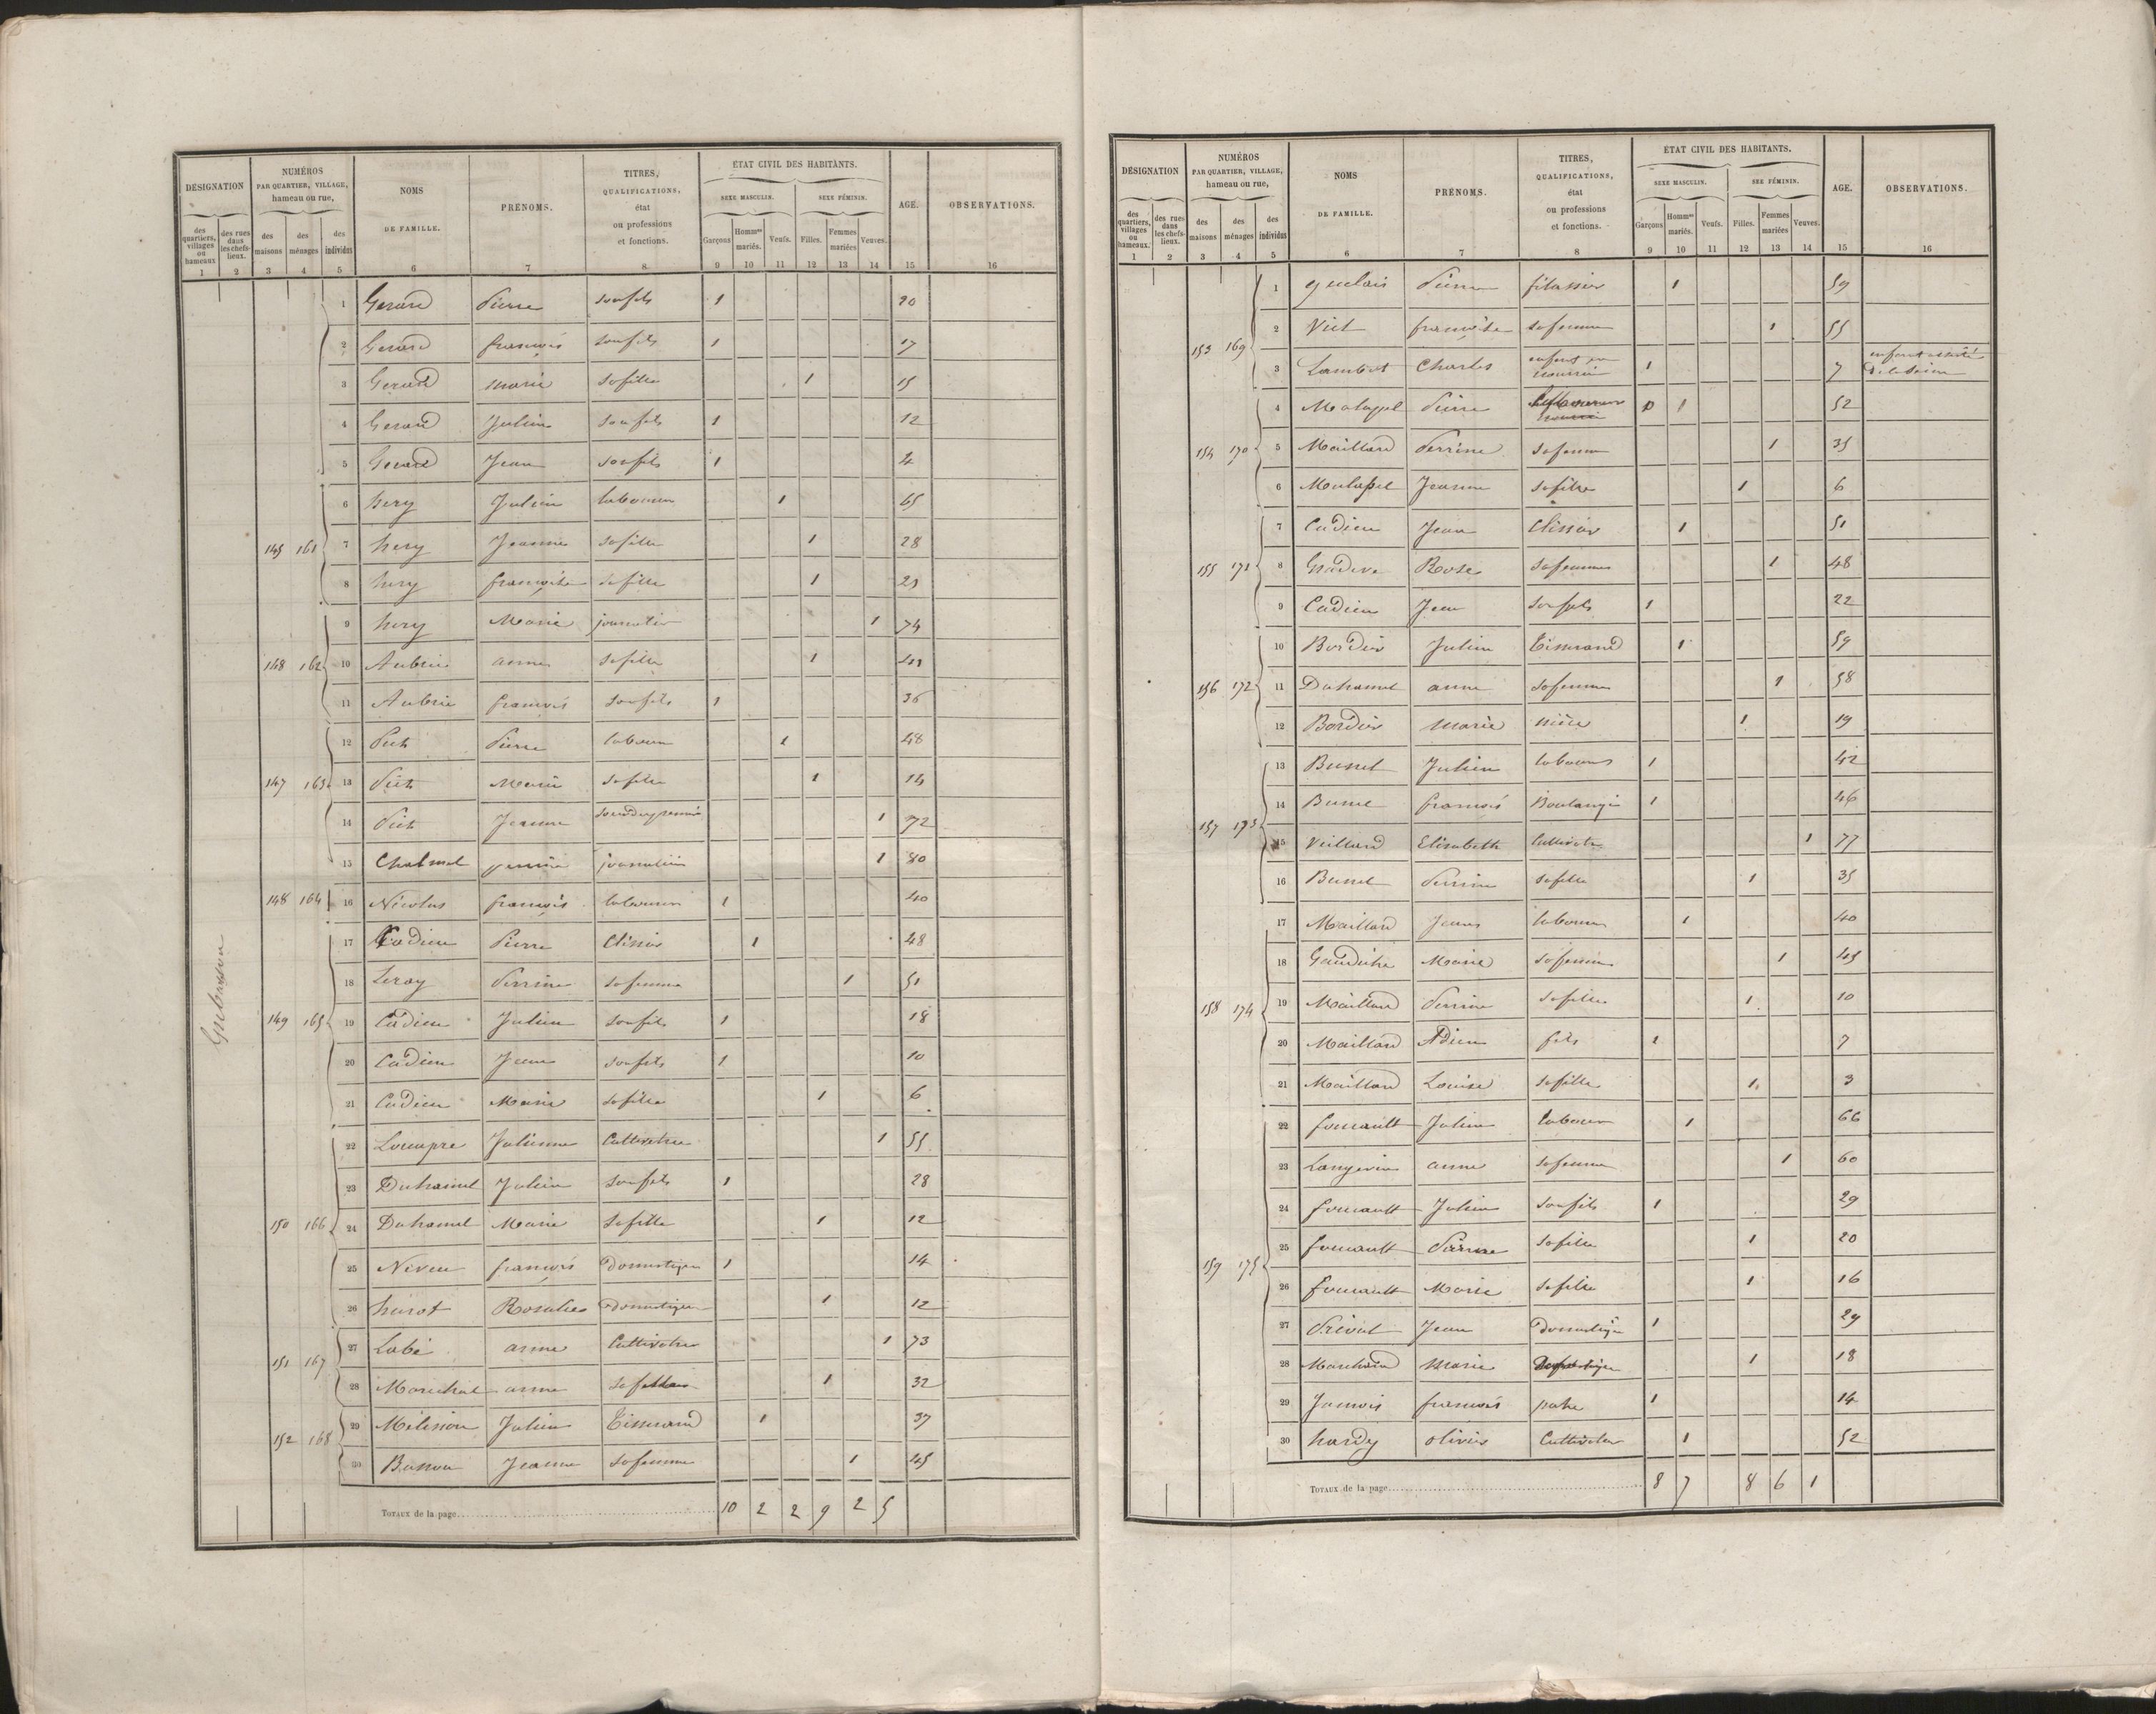 DÉSIGNATION NUMÉROS PAR QUARTIER, VILLAGE, hameau ou rue, NOMS DE FAMILLE. PRÉNOMS. TITRES, QUALIFICATIONS, état ou professions et fonctions. ÉTAT CIVIL DES HABITANTS. AGE. OBSERVATIONS.
SEXE MASCULIN. SEXE FÉMININ.
des quartiers, villages ou hameaux des rues dans les chefs-lieux. des maisons des ménages des individus Garçons Hommes mariés. Veufs. Filles. Femmes mariées Veuves.
1 2 3 4 5 6 7 8 9 10 11 12 13 14 15 16
1 Gerard Pierre son fils 1 20
2 Gerard françois son fils 1 17
3 Gerard marie sa fille 1 15
4 Gerard Julien son fils 1 12
5 Gerard Jean son fils 1 4
6 hery Julien laboureur 1 65
145 161 7 hery Jeanne sa fille 1 28
8 hery françoise sa fille 1 21
9 hery Marie 1 74
148 162 10 Aubrie anne sa fille 1
11 Aubrie françois son fils 1 36
12 Piet Pierre laboureur 1 48
147 163 13 Piet Marie sa fille 1 14
14 Piet Jeanne 1 72
15 Chalmel 1 80
148 164 16 Nicolas françois laboureur 1 40
17 Cadieu Pierre Clissier 1 48
18 Leray Perrine sa femme 1 51
149 165 19 Cadieu Julien son fils 1 18
20 Cadieu Jean son fils 1 10
21 Cadieu Marie sa fille 1 6
22 Louapre Julienne Cultivatrice 1 55
23 Duhamel Julien son fils 1 28
150 166 24 Duhamel Marie sa fille 1 12
25 Neveu françois Domestique 1 14
26 Rosalie domestique 1 12
27 Labé anne Cultivatrice 1 73
151 167
28 Marichal anne 1 32
29 Julien Tisserand 1 37
152 168
30 Jeanne sa femme 1 45
TOTAUX de la page 10 2 2 9 2 5
DÉSIGNATION NUMÉROS PAR QUARTIER, VILLAGE, hameau ou rue, NOMS DE FAMILLE. PRÉNOMS. TITRES, QUALIFICATIONS, état ou professions et fonctions. ÉTAT CIVIL DES HABITANTS. AGE. OBSERVATIONS.
SEXE MASCULIN. SEE FÉMININ.
des quartiers, villages ou hameaux. des rues dans les chefs-lieux. des maisons des ménages des individus Garçons Hommes mariés. Veufs. Filles. Femmes mariées Veuves.
1 2 3 4 5 6 7 8 9 10 11 12 13 14 15 16
1 Pierre filassier 1 59
2 Viel françoise sa femme 1 55
153 169
3 Lambert Charles enfant en nourrice 1 7 enfant assisté de la Seine
4 Malapel Pierre 1 52
154 170 5 Maillard Perrine sa femme 1 35
6 Malapel Jeanne sa fille 1 6
7 Cadieu Jean Clissier 1 51
155 171 8 Rose sa femme 1 48
9 Cadieu Jean son fils 1 22
10 Bordier Julien Tisserand 1 59
156 172 11 Duhamel anne sa femme 1 58
12 Bordier Marie nièce 1 19
13 Bunel Julien laboureur 1 42
14 Bunel françois Boulanger 1 46
157 173
15 Veillard Elisabeth Cultivatrice 1 77
16 Bunel Perrine sa fille 1 35
17 Maillard Jean laboureur 1 40
18 Marie sa femme 1 45
158 174 19 Maillard Perrine sa fille 1 10
20 Maillard fils 1 7
21 Maillard Louise sa fille 1 3
22 fouault Julien laboureur 1 66
23 Langevin anne sa femme 1 60
24 fouault Julien son fils 1 29
25 fouault Perrine sa fille 1 20
159 175
26 fouault Marie sa fille 1 16
27 Jean Domestique 1 29
28 Marchand Marie 1 18
29 françois patre 1 14
30 hardy olivier Cultivateur 1 52
TOTAUX de la page 8 7 8 6 1